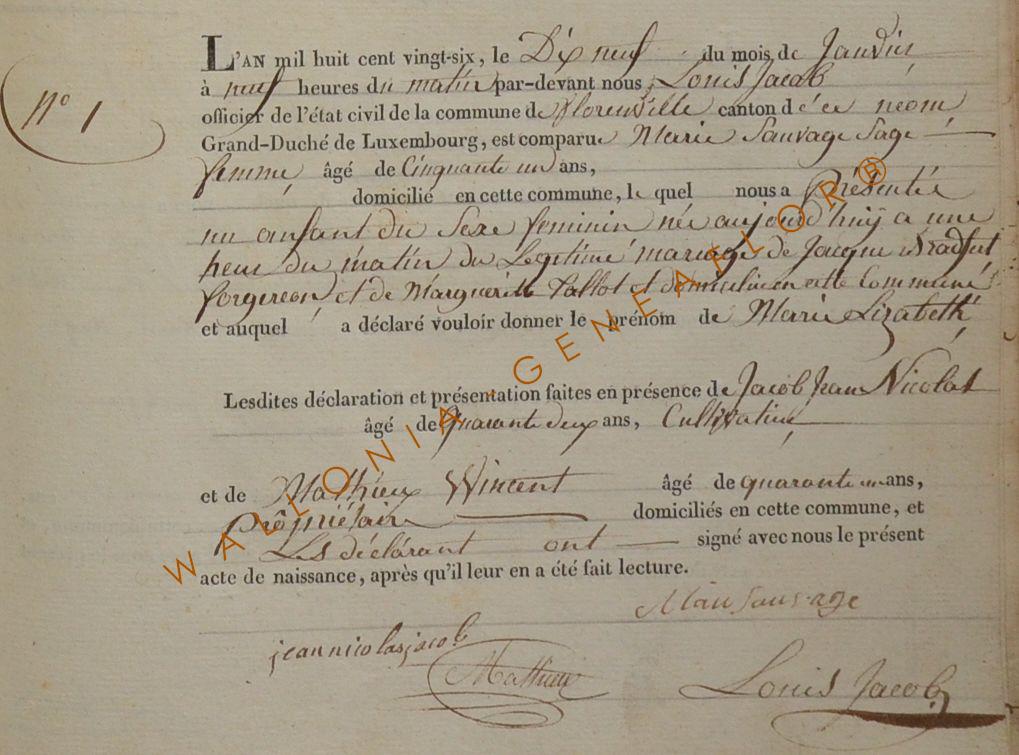 N° 1
L'AN mil huit cent vingt-six, le Dix neuf du mois de Janvier
à neuf heures du matin par-devant nous, Louis Jacob
officier de l'état civil de la commune de florenville canton d
Grand-Duché de Luxembourg, est comparue Marie Sauvage Sage
femme, âgé de Cinquante un ans,
domicilié en cette commune, le quel nous a Présentée
un anfant du Sexe feminin née aujourd'huÿ a une
heur du matin du Legitime mariage de Jacque
forgereon, et de Marguerite Tallot et domicilié en cette Commune
et auquel a déclaré vouloir donner le prénom de Marie Lizabeth
Lesdites déclaration et présentation faites en présence de Jacob Jean Nicolas
âgé de quarante deux ans, Cultivateur
et de Mathieu Wincent âgé de quarante un ans,
Propriétaire domiciliés en cette commune, et
Les déclarant ont signé avec nous le présent
acte de naissance, après qu'il leur en a été fait lecture.
sauvage
jean nicolas jacob
Mathieu
Louis Jacob
WALLONIA-GENEALOR®